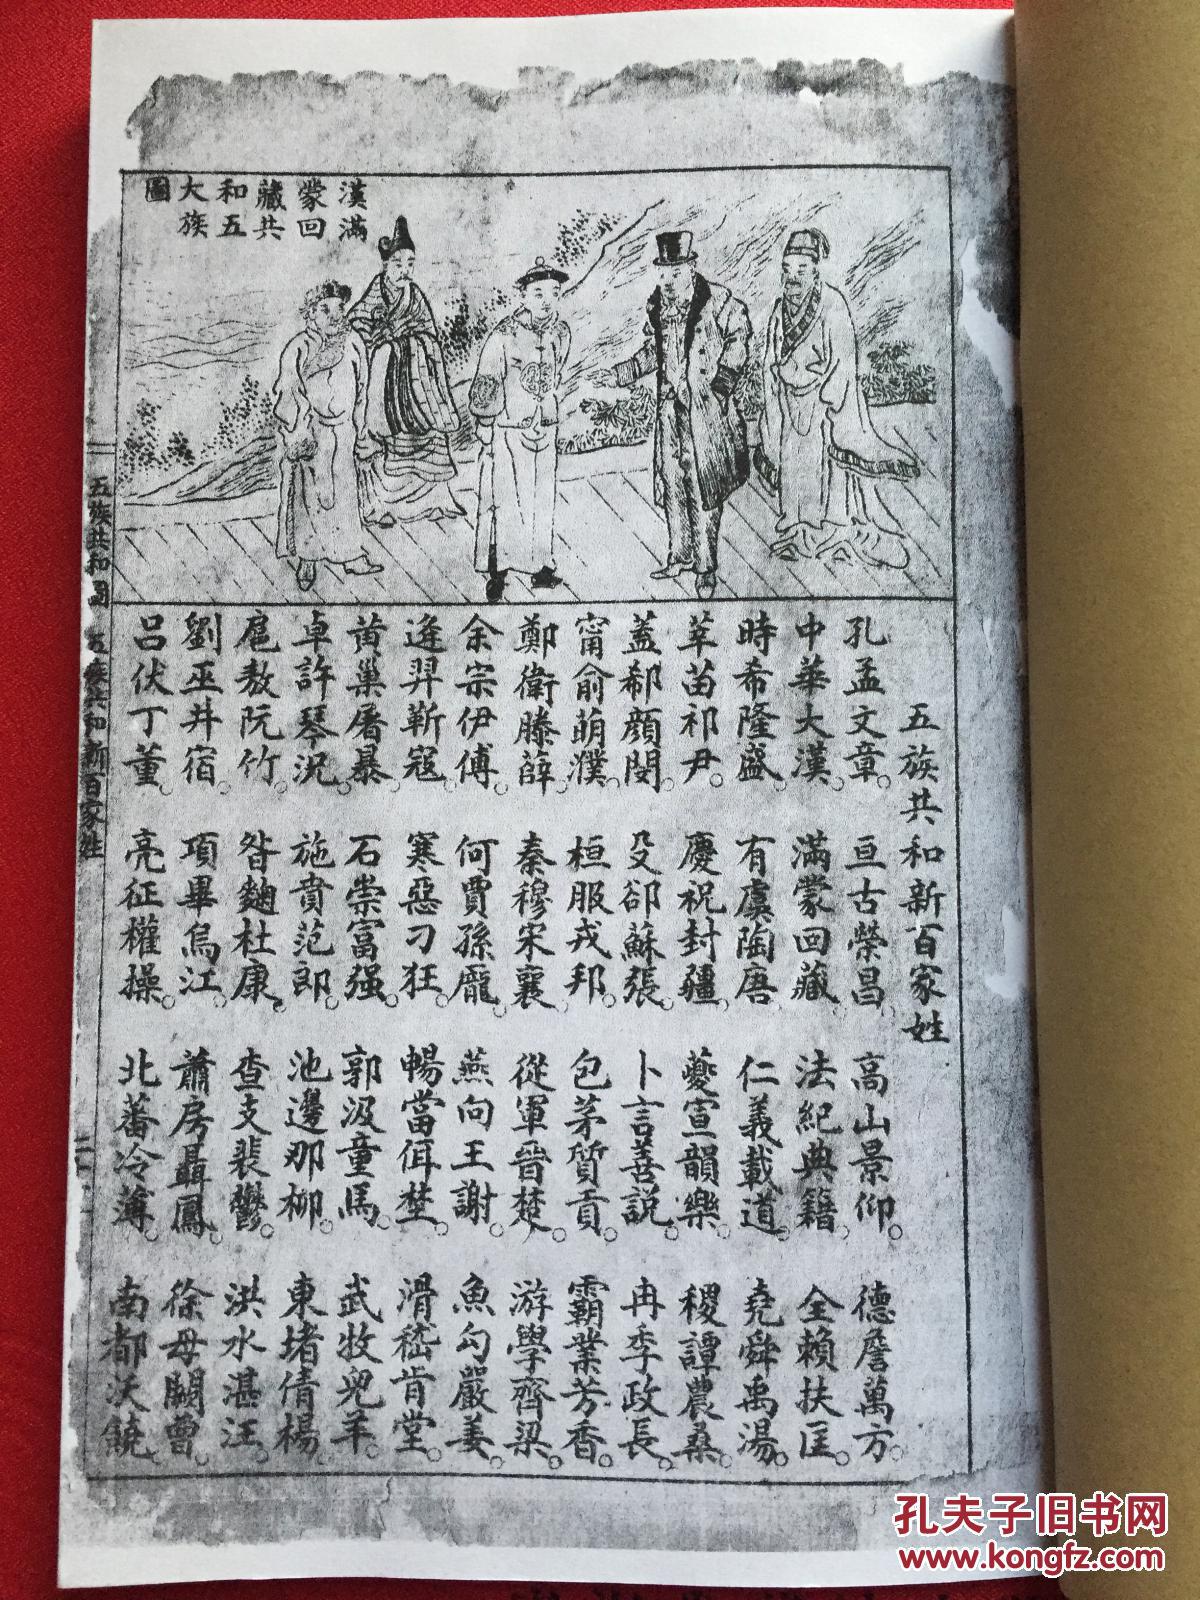 漢滿
蒙回
藏共
和五
大族
圖
五族共和新百家姓
孔孟文章。亘古榮昌。高山景仰。德詹萬方。
中華大漢。滿蒙回藏。法紀典籍。全賴扶匡。
時希隆盛。有虞陶唐。仁義載道。堯舜禹湯。
莘苗祁尹。慶祝封疆。夔宣韻樂。稷譚農桑。
蓋郗顔閔。殳郤蘇張。卜言善説。冉季政長。
甯俞萌濮。桓服戎邦。包茅質貢。霸業芳香。
鄭衛滕薛。秦穆宋襄。從軍晉楚。游學齊梁。
余宗伊傅。何賈孫龐。燕向王謝。魚勾嚴姜。
逄羿靳寇。寒惡刁狂。暢當佴埜。滑嵇肯堂。
黄巢屠暴。石崇富强。郭汲童馬。武牧兒羊。
卓許琴況。施賁范郎。池邊那柳。東堵倩楊。
扈敖阮竹。昝麴杜康。查支裴鬱。洪水湛汪。
劉巫井宿。項畢烏江。蕭房聶鳳。徐母闞曾。
吕伏丁董。亮征權操。北蕃冷薄。南都沃饒。
五族共和圖 五族共和新百家姓
一
孔夫子旧书网
www.kongfz.com